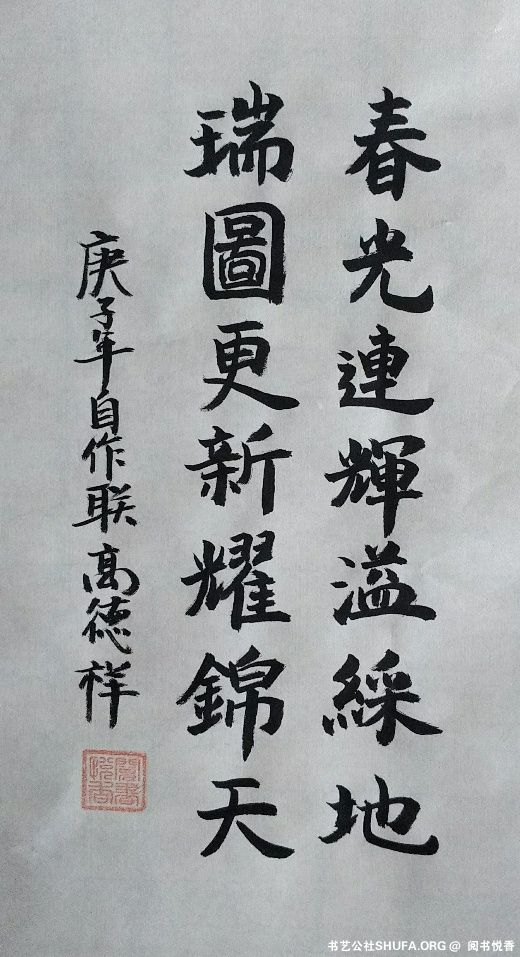 春光連輝溢綵地
瑞圖更新耀錦天
庚子年自作联高德祥
閱書悅香
书艺公社SHUFA.ORG @ 阅书悦香